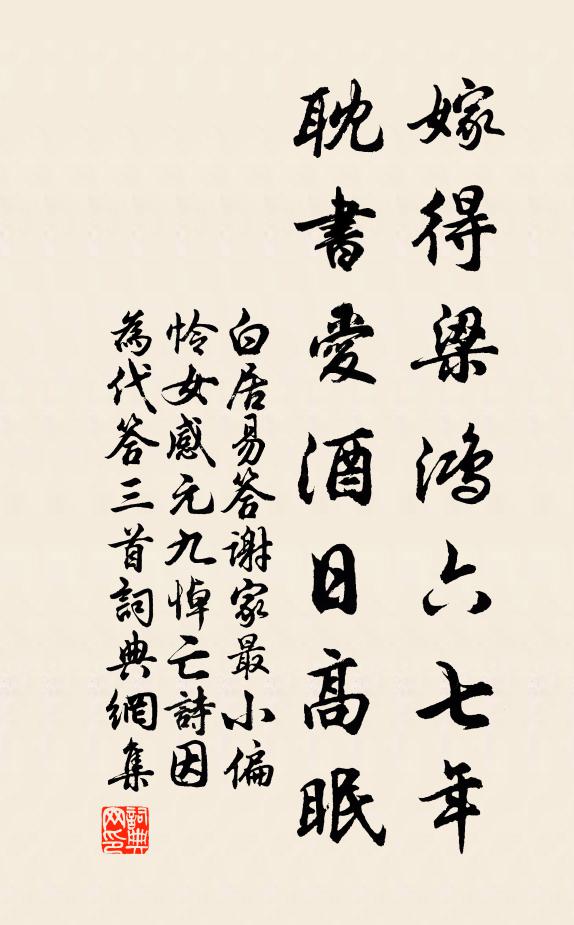 嫁得梁鴻六七年
耽書愛酒日高眠
白居易答謝家最小偏
怜女感元九悼亡詩因
為代答三首詞典網集
詞典
网印